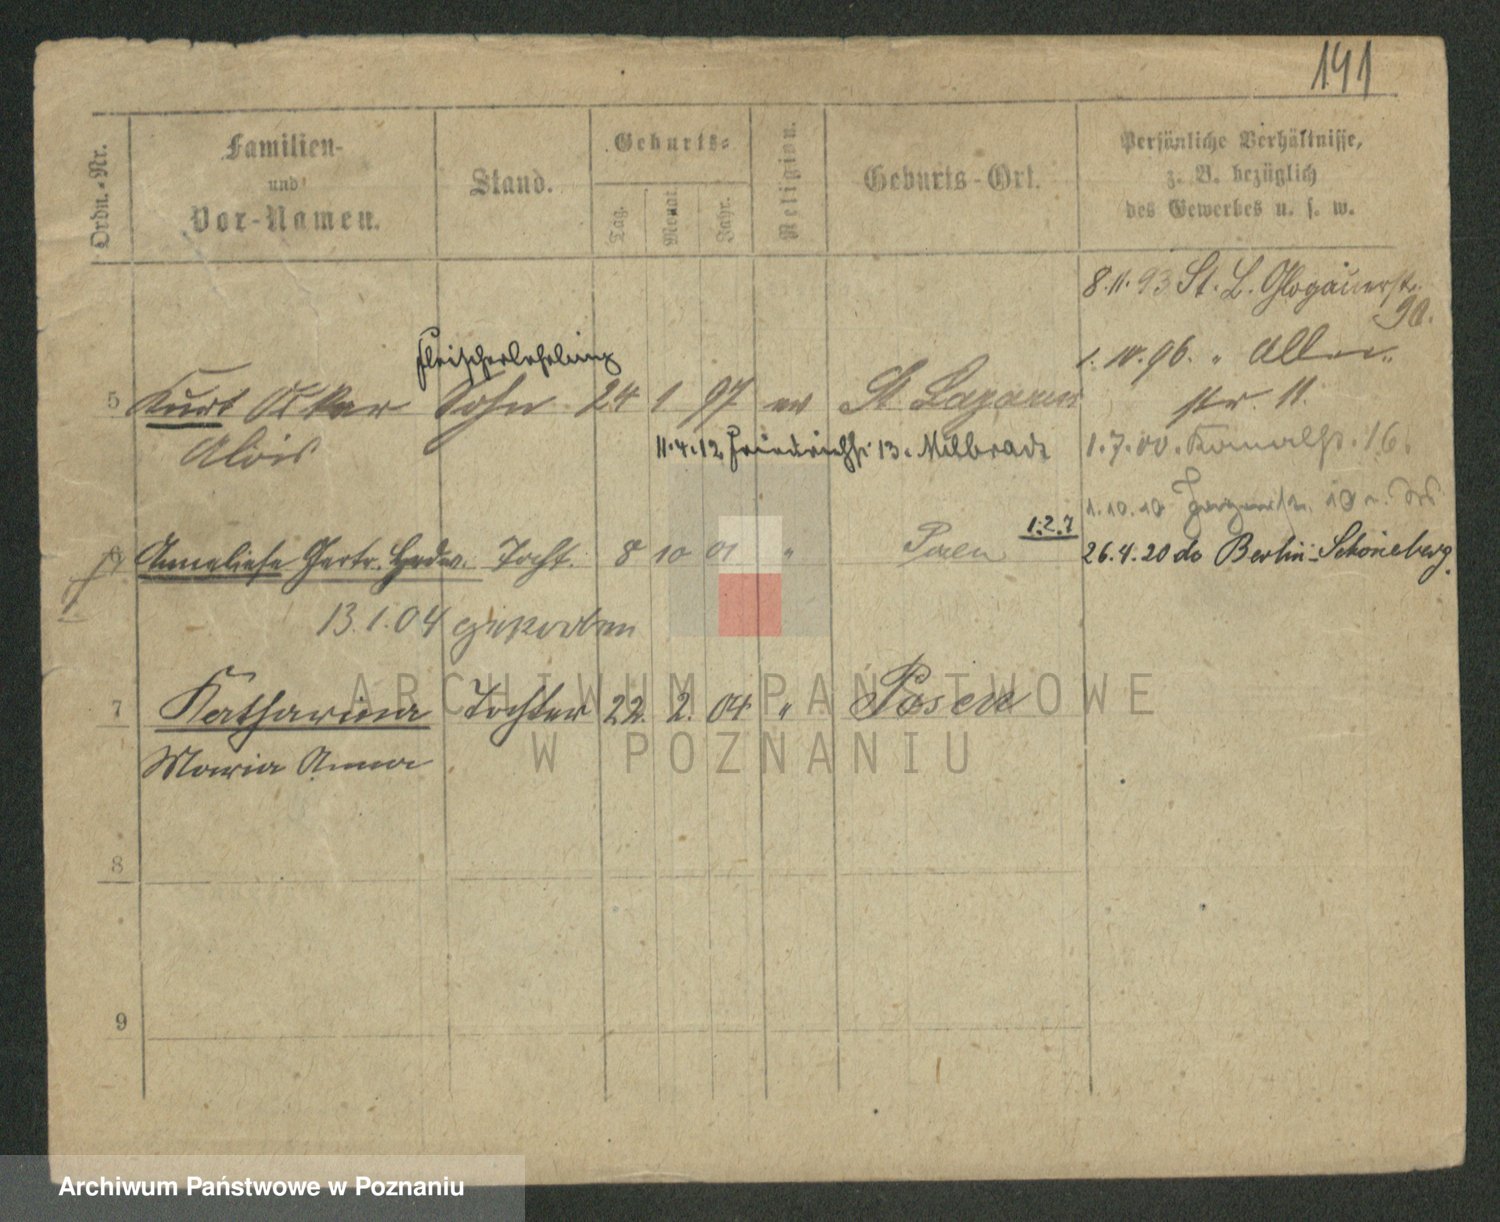 141
Ordn.-Nr.
Familien-
und
Vor-Namen.
Stand.
Geburts-
Tag.
Monat.
Jahr.
Religion.
Geburts-Ort.
Persönliche Verhältnisse,
z. B. bezüglich
des Gewerbes u. s. w.
8.11.93 St. L. Glogauerstr.
90.
1. IV. 96. "
str. 11.
Fleischerlehrling
5 Kurt Oskar Sohn 24 1 97 ev St Lazarus
Alois
11.4.12 Friedrichstr 13. Milbradt
1.7.00. 16.
1.10.10
6 Anneliese Gertr. Hedw. Tocht. 8 10 01 " Posen 1.2.7
26.4.20 do Berlin-Schöneberg.
13.1.04 gestorben
7 Katharina Tochter 22. 2. 04 " Posen
Maria Anna
8
9
ARCHIWUM PAŃSTWOWE
W POZNANIU
Archiwum Państwowe w Poznaniu